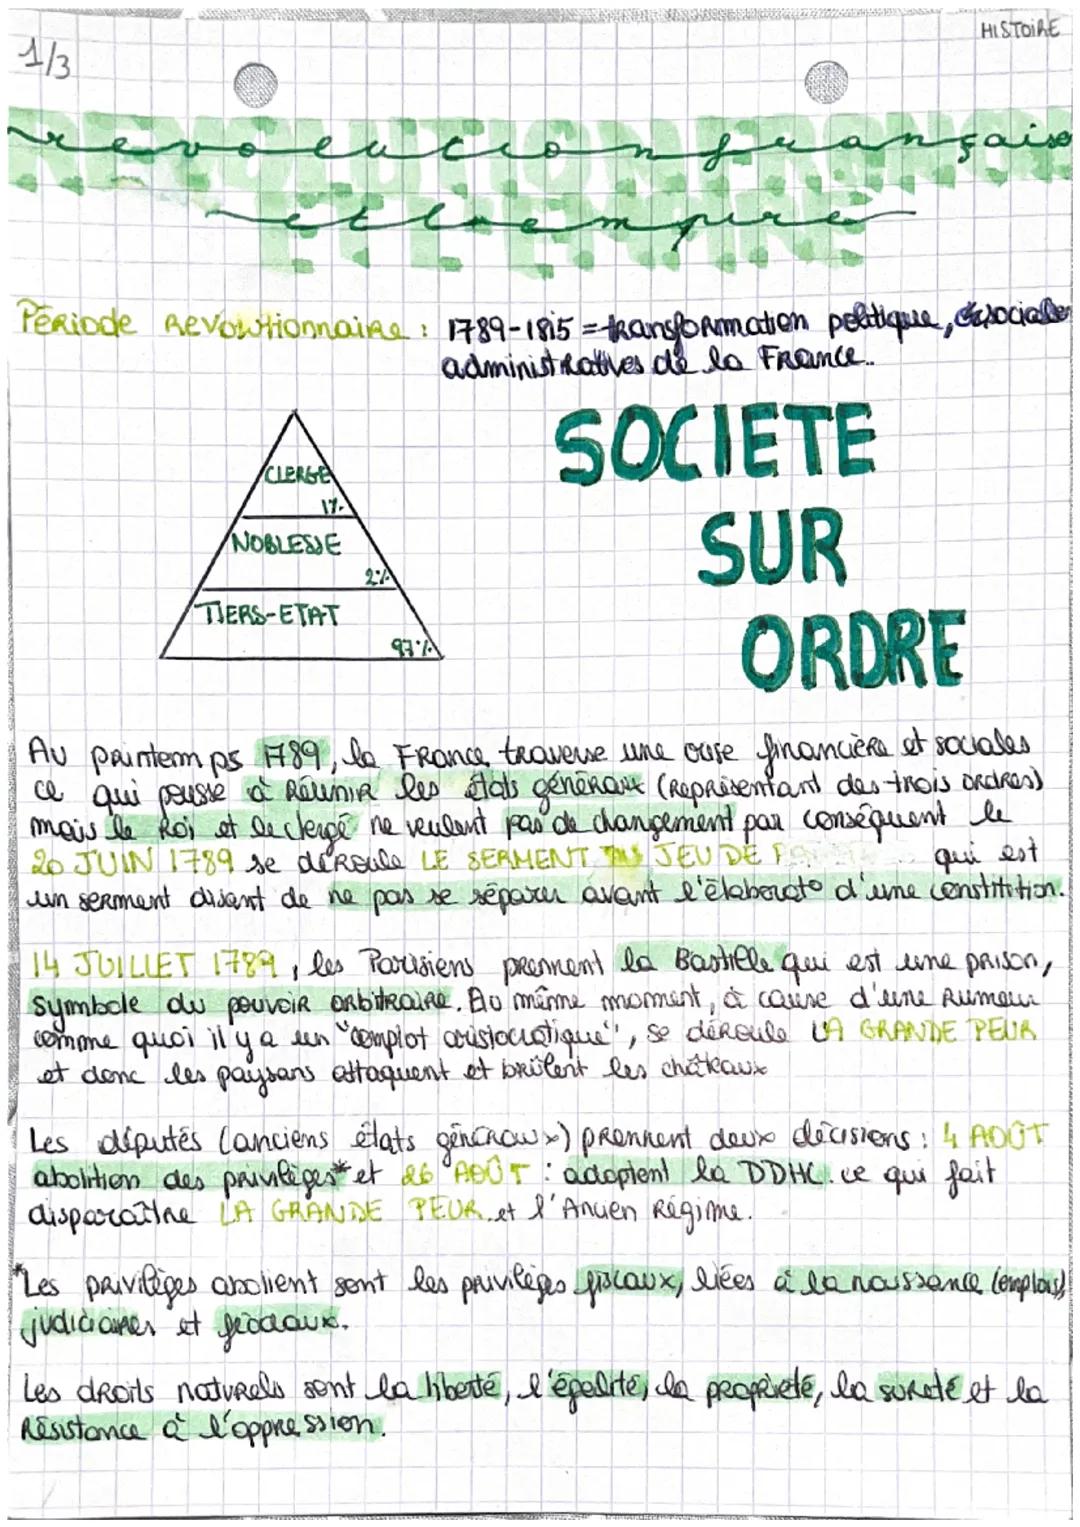 HISTOIRE
1/3
révolution française
et l'empire
Période Revolutionnaire : 1789-1815 = transformation politique, sociale
administratives de la France..
CLERGE
1%
NOBLESSE
2%
TIERS-ETAT
97%
SOCIETE
SUR
ORDRE
Au printemps 1789, la France traverse une crise financière et sociales
ce qui pousse à Réunir les états généraux (représentant des trois ordres)
mais le Roi et le clergé ne veulent pas de changement par conséquent le
20 JUIN 1789 se déroule LE SERMENT DU JEU DE qui est
un serment disant de ne pas se séparer avant l'élaborat° d'une constitition.
14 JUILLET 1789, les Parisiens prennent la Bastille qui est une prison,
symbole du pouvoir arbitraire. Au même moment, à cause d'une Rumeur
comme quoi il y a un "complot aristocratique", se déroule LA GRANDE PEUR
et donc les paysans attaquent et brûlent les châteaux
Les députés (anciens états généraux) prennent deux décisions : 4 AOÛT
abolition des privilèges* et 26 AOÛT : adoptent la DDHC. ce qui fait
disparaître LA GRANDE PEUR et l'Ancien Régime.
*Les privilèges abolient sont les privilèges fiscaux, liées à la naissance (emplois),
judiciaires et féodaux.
Les droits naturels sont la liberté, l'égalité, la propriété, la sureté et la
Résistance à l'oppression.